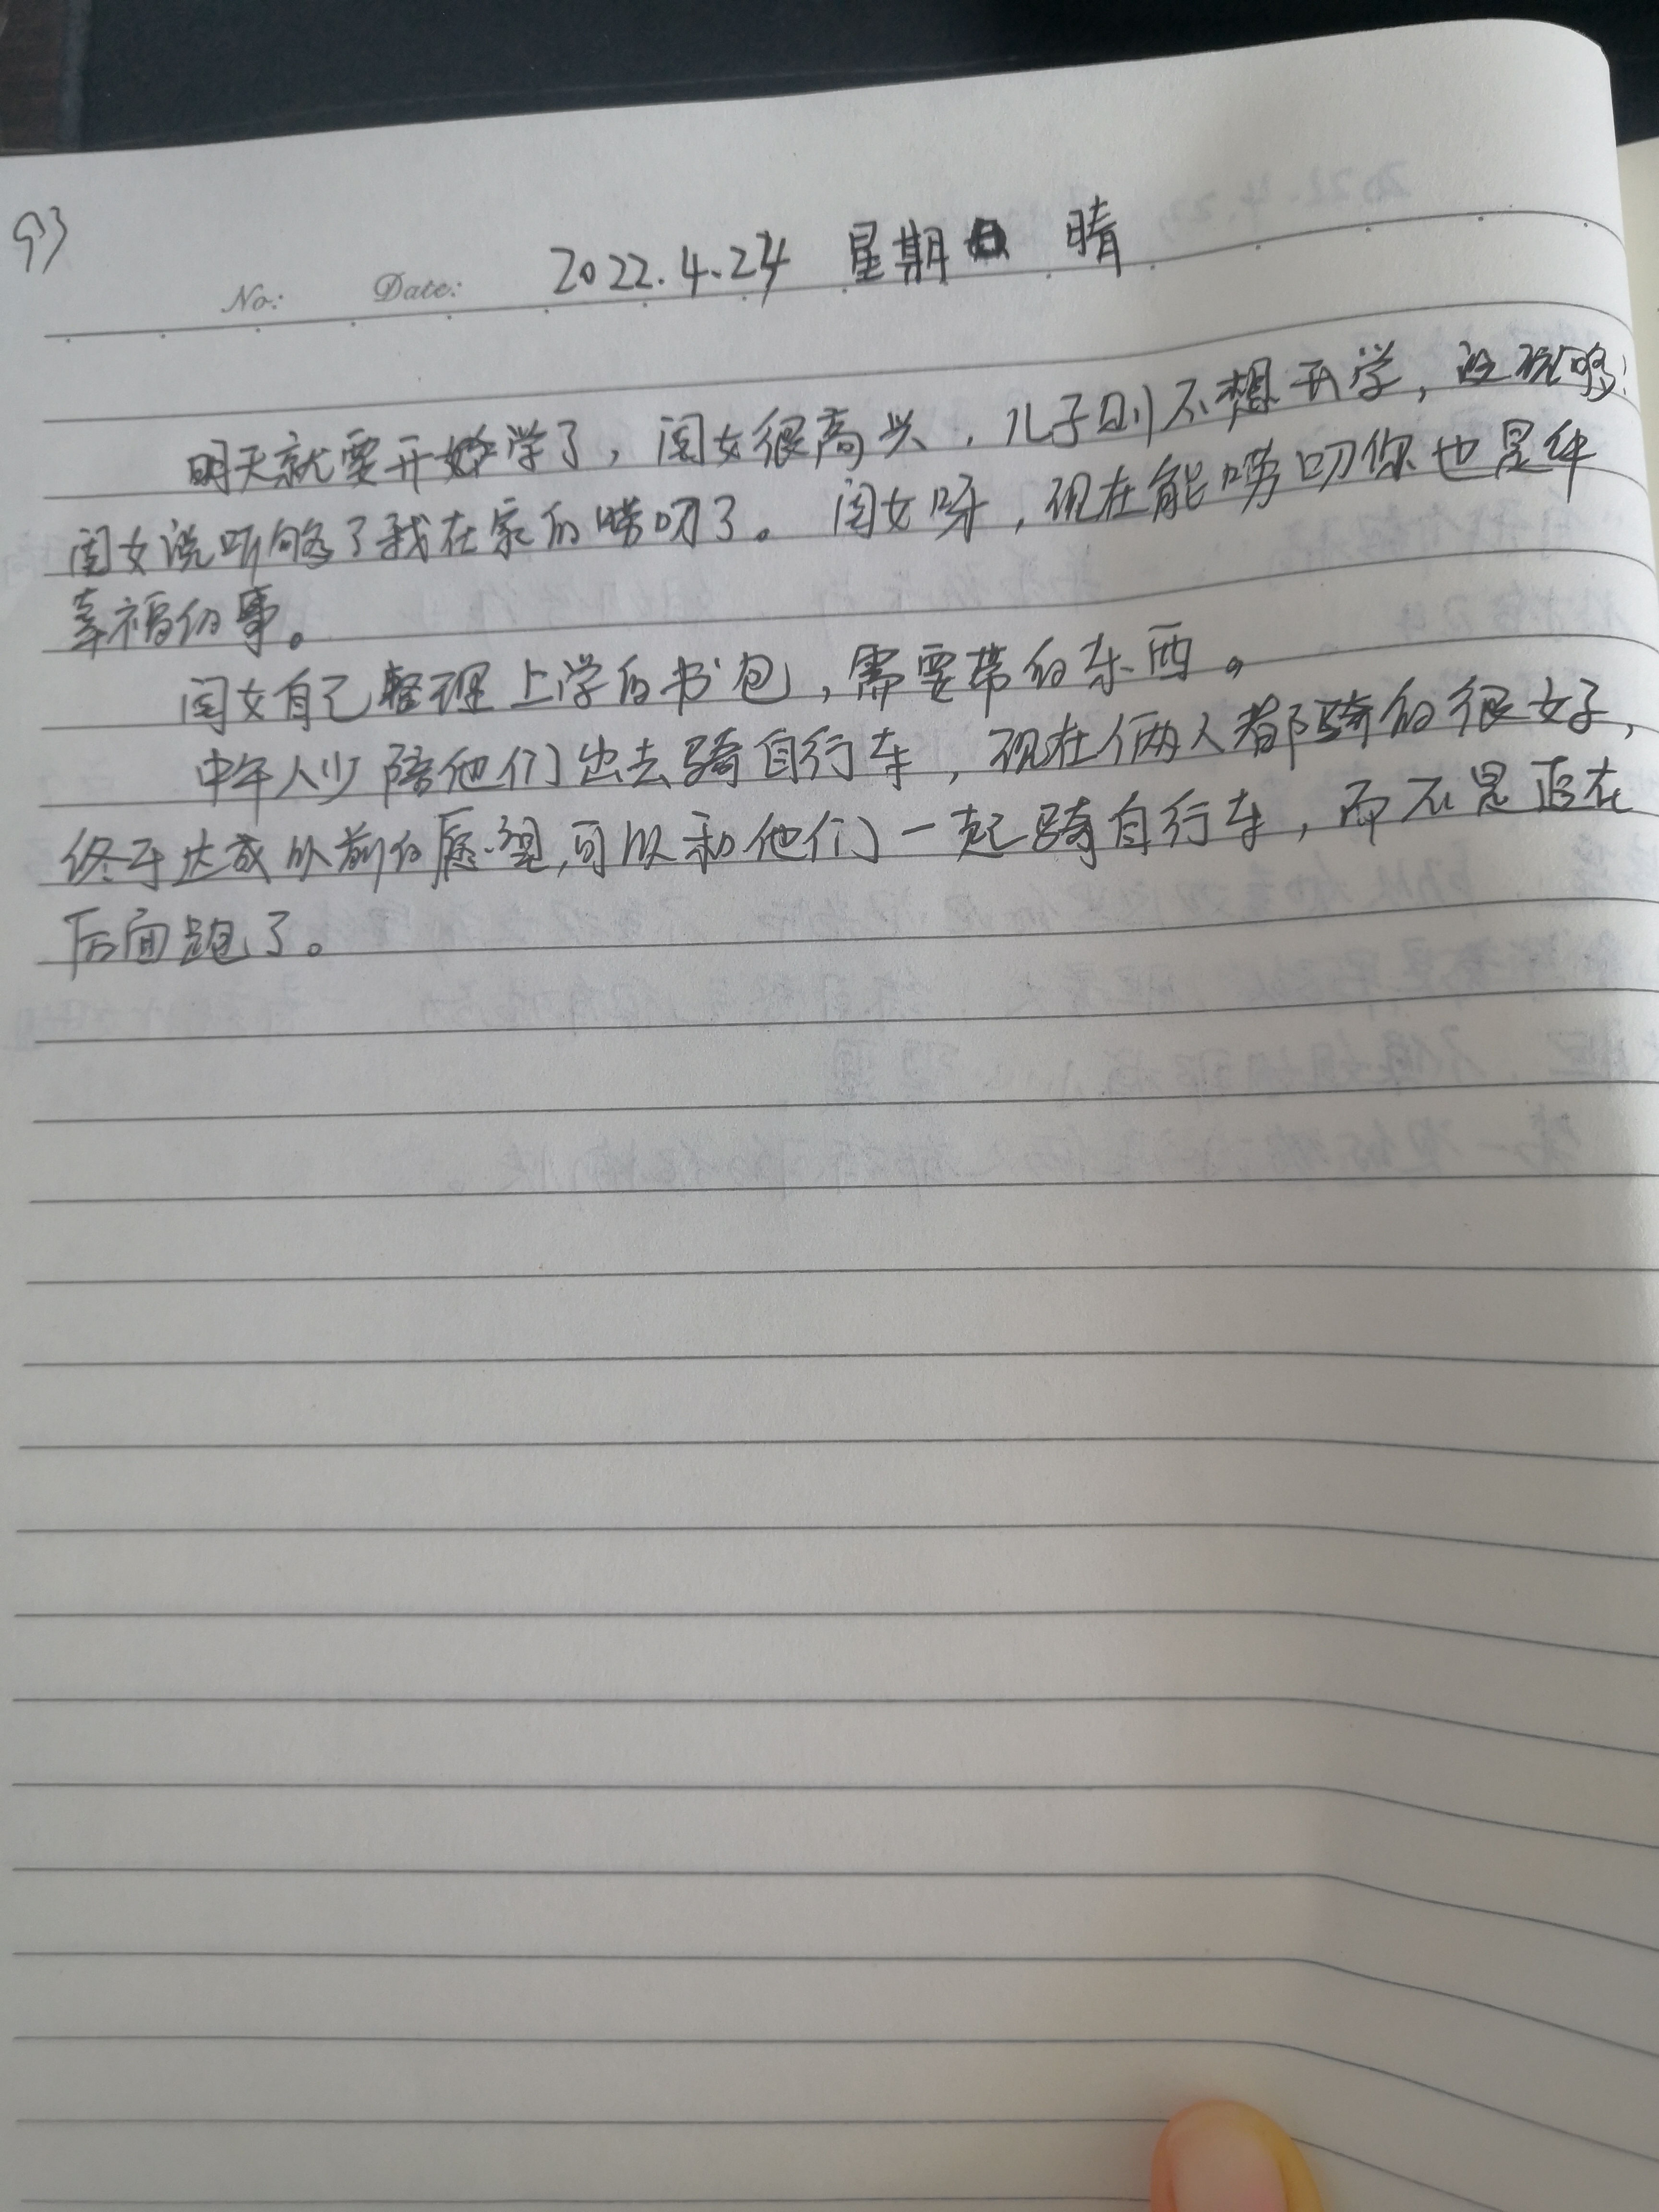 93
No: Date: 2022.4.24 星期日 晴
明天就要开学了，闺女很高兴，儿子则不想开学，
闺女说听够了我在家的唠叨了。闺女呀，现在能唠叨你也是件
幸福的事。
闺女自己整理上学的书包，需要带的东西。
中午人少陪他们出去骑自行车，现在俩人都骑的很好，
终于达成以前的愿望，可以和他们一起骑自行车，而不是追在
后面跑了。